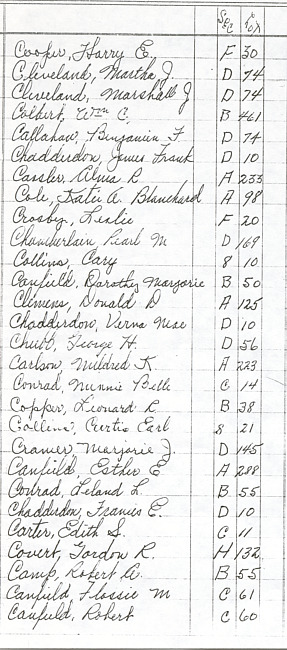 SEC LOT
Cooper, Harry E. F 30
Cleveland, Martha J. D 74
Cleveland, Marshall J D 74
Colbert, Wm C. B 461
Callahan, Benjamin F. D 74
Chadderdon, James Frank D 10
Cassler, Alma R A 233
Cole, Katie A. Blanchard A 98
Crosby, Leslie F 20
Chamberlain Pearl M D 169
Collins, Cary 8 10
Canfield, Dorothy Marjorie B 50
Clemens, Donald D A 125
Chadderdon, Verna Mae D 10
Chubb, George H. D 56
Carlson, Mildred K. A 223
Conrad, Minnie Belle C 14
Copper, Leonard L B 38
Collins, Curtis Earl 8 21
Cramer Marjorie J. D 145
Canfield, Esther E A 288
Conrad, Leland L. B 55
Chadderdon, Frances E. D 10
Carter, Edith S. C 11
Covert, Gordon R. H 132
Camp, Robert A. B 55
Canfield Flossie M C 61
Canfield, Robert C 60